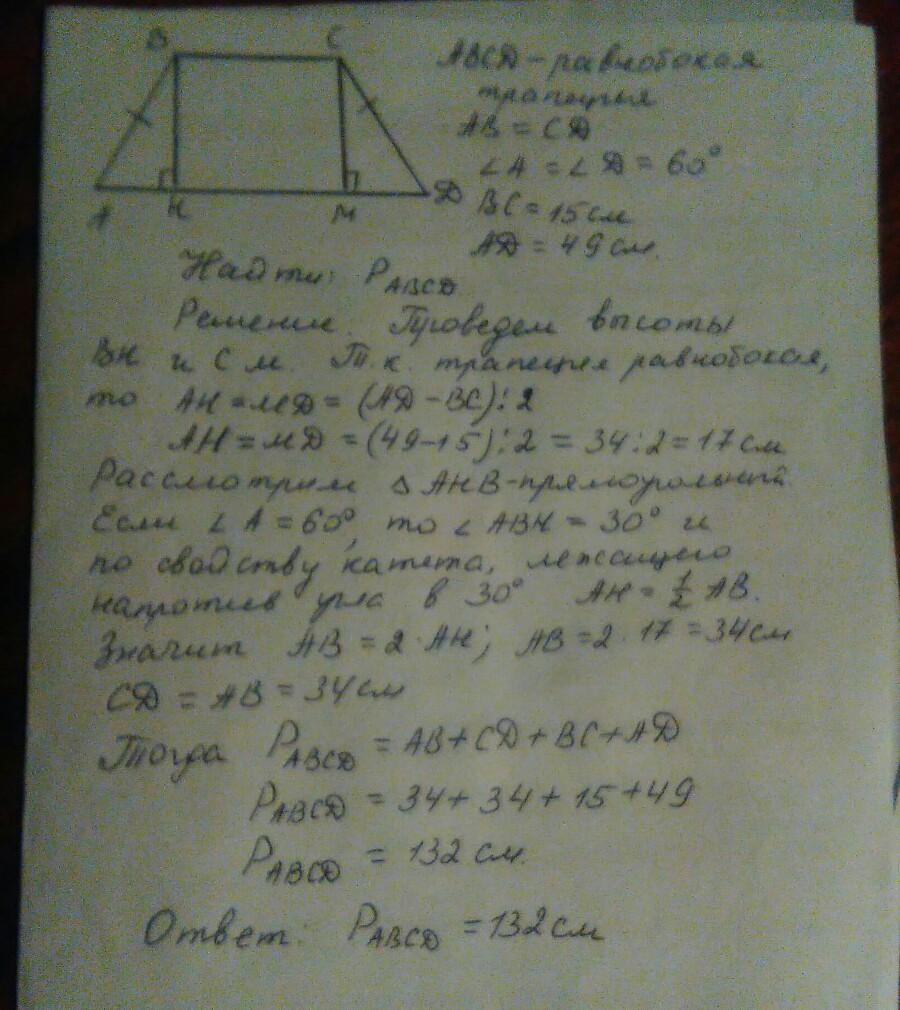 B C
A H M D
ABCD - равнобокая
трапеция
AB = CD
∠A = ∠D = 60°
BC = 15 см
AD = 49 см.
Найти: P_ABCD
Решение. Проведем высоты
BH и CM. Т.к. трапеция равнобокая,
то AH = MD = (AD - BC) : 2
AH = MD = (49-15) : 2 = 34 : 2 = 17 см
Рассмотрим △ AHB - прямоугольный
Если ∠A = 60°, то ∠ABH = 30° и
по свойству катета, лежащего
напротив угла в 30° AH = 1/2 AB.
Значит AB = 2 · AH; AB = 2 · 17 = 34 см
CD = AB = 34 см
Тогда P_ABCD = AB + CD + BC + AD
P_ABCD = 34 + 34 + 15 + 49
P_ABCD = 132 см.
Ответ: P_ABCD = 132 см